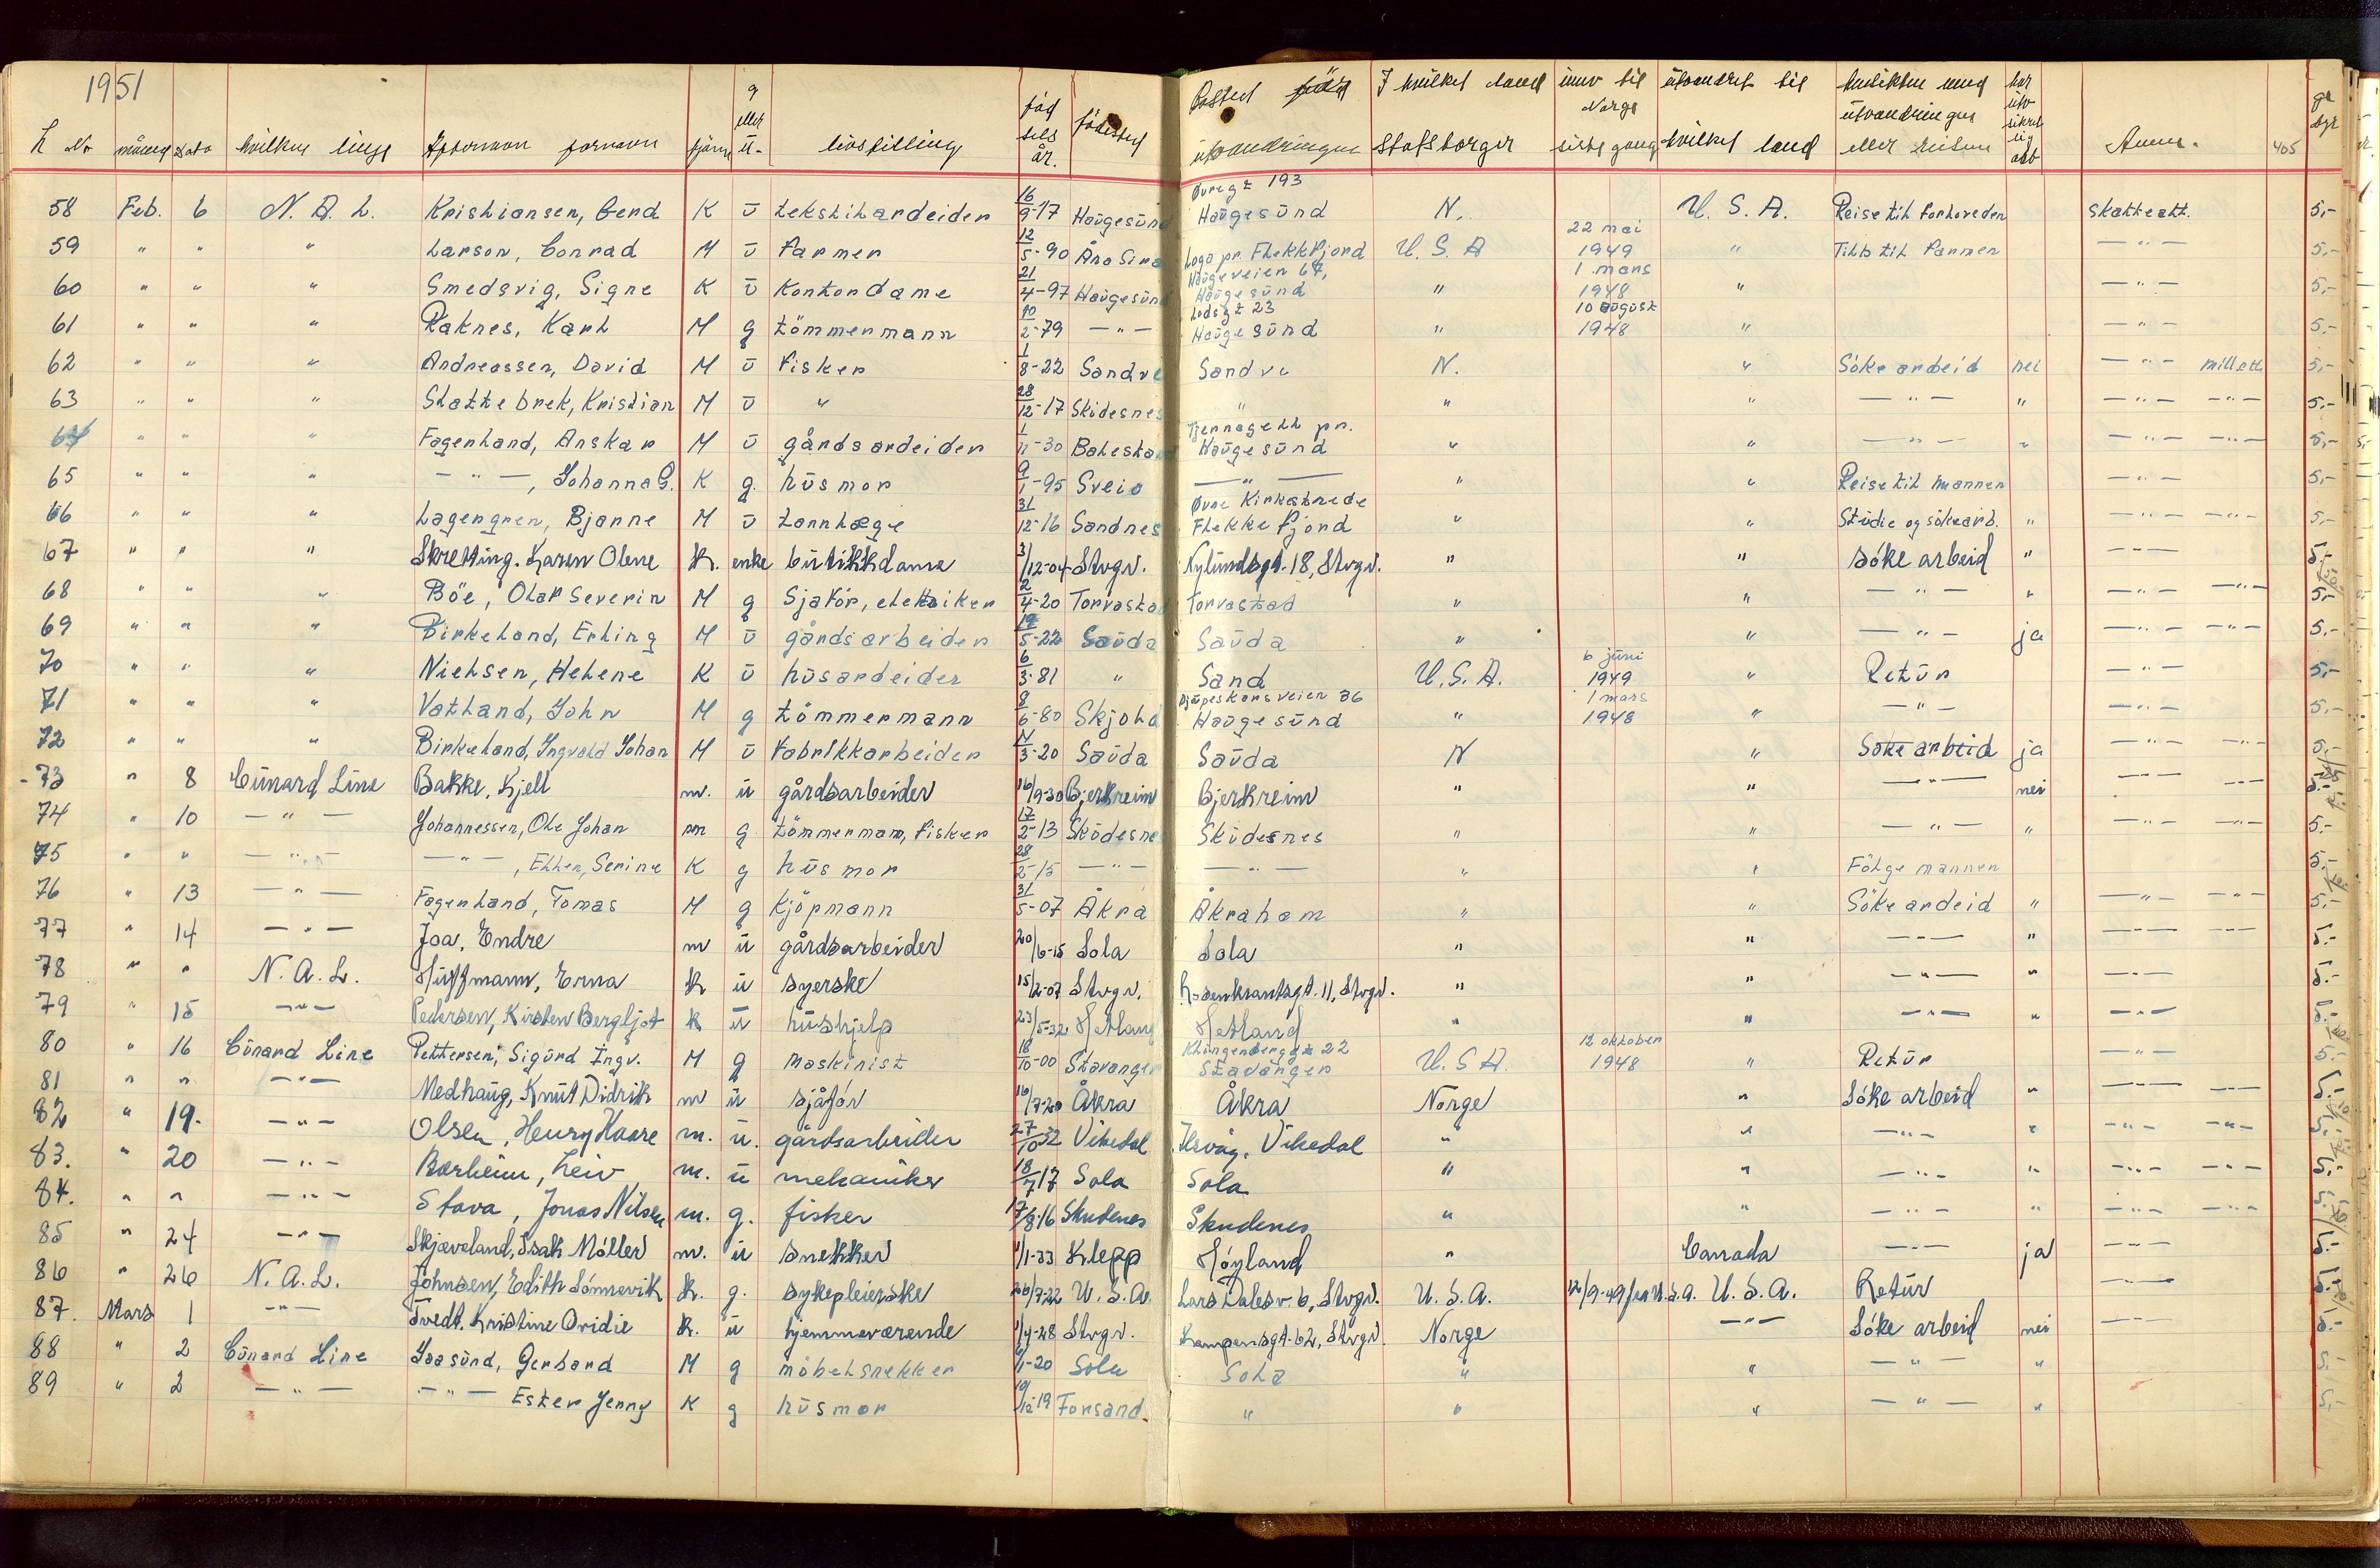 1951
L Nr måned dato hvilken linje Etternavn fornavn kjönn g eller ü- livsstilling födselsår. födested Bosted före ütvandringen I hvilket land statsborger innv til Norge siste gang ütvandret til hvilket land hensikten med ütvandringen eller reisen har ütv sikret sig arb Anm. 405 gebyr
58 Feb. 6 N. A. L. Kristiansen, Gerd K ū tekstilarbeider 16/9-17 Haūgesūnd Øvregt 193 Haūgesūnd N. U. S. A. Reise til forloveden Skatteatt. 5,-
59 " " " Larson, Conrad M ū farmer 12/5-90 Åna Sira Loga pr. Flekkfjord U. S. A 22 mai 1949 " Tilb til farmen — " — 5,-
60 " " " Smedsvig, Signe K ū Kontordame 21/4-97 Haūgesūnd Haūgeveien 67, Haūgesūnd " 1 mars 1948 " — " — 5,-
61 " " " Raknes, Karl M g tömmermann 10/2-79 — " — Lodsgt 23 Haūgesūnd " 10 aūgūst 1948 " — " — 5,-
62 " " " Andreassen, David M ū fisker 1/8-22 Sandve Sandve N. " Söke arbeid nei — " — mil att. 5,-
63 " " " Stattebrek, Kristian M ū " 28/12-17 Skūdesnes " " " — " — " — " — — " — 5,-
64 " " " Fagerland, Anskar M ū gårdsarbeider 1/11-30 Balestrand Tjernagell pr. Haūgesūnd " " — " — " — " — — " — 5,-
65 " " " — " —, Johanna G. K g. hūsmor 9/1-95 Sveio — " — " " Reise til mannen — " — 5,-
66 " " " Lagergren, Bjarne M ū tannlæge 31/12-16 Sandnes Øvre Kirkestrede Flekkefjord " " Stūdie og sökearb. " — " — — " — 5,-
67 " " " Skretting. Karen Olene K. enke bütikkdame 3/12-04 Stvgr. Nylundsgt. 18, Stvgr. " " söke arbeid " — " — 5.-
68 " " " Böe, Olaf Severin M g Sjaför, elektriker 2/4-20 Torvastad Torvastad " " — " — " — " — — " — 5,-
69 " " " Birkeland, Erling M ū gårdsarbeider 19/5-22 Saūda Saūda " " — " — ja — " — — " — 5,-
70 " " " Nielsen, Helene K ū hūsarbeider 6/3-81 " Sand U. S. A. 6 jūni 1949 " Retūr — " — 5,-
71 " " " Vatland, John M g tömmermann 8/6-80 Skjold Djūpeskarsveien 36 Haūgesūnd " 1 mars 1948 " — " — — " — 5,-
72 " " " Birkeland, Ingvald Johan M ū Fabrikkarbeider /3-20 Saūda Saūda N " Söke arbeid ja — " — — " — 5,-
-73 " 8 Cünard Line Bakke, Kjell m. ü gårdsarbeider 16/9-30 Bjerkreim Bjerkreim " " — " — nei — " — — " — 5.-
74 " 10 — " — Johannessen, Ole Johan m g tömmermann, fisker 17/2-13 Skūdesnes Skūdesnes " " — " — " — " — — " — 5.-
75 " " — " — — " —, Ellen, Serine K g hūsmor 28/2-15 — " — — " — " " Fölge mannen 5,-
76 " 13 — " — Fagerland, Tomas M g Kjöpmann 31/5-07 Åkra Åkraham " " Söke arbeid " — " — — " — 5,-
77 " 14 — " — Joa, Endre m ü gårdsarbeider 20/6-15 Sola Sola " " — " — " — " — — " — 5.-
78 " " N. A. L. Hüffmann, Erna K ü syerske 15/2-07 Stvgr. Rosenkrantsgt. 11, Stvgr. " " — " — " — " — 5.-
79 " 15 — " — Pedersen, Kirsten Bergljot K ü hüshjelp 23/5-32 Hetland Hetland " " — " — " — " — 5.-
80 " 16 Cūnard Line Pettersen, Sigūrd Ingv. M g maskinist 18/10-00 Stavanger Klingenberggt 22 Stavanger U. S A. 12 oktober 1948 " Retūr — " — 5.-
81 " " — " — Medhaüg, Knüt Didrik m ü sjåför 16/7-20 Åkra Åkra Norge " Söke arbeid " — " — — " — 5.-
82 " 19. — " — Olsen, Henry Haare m. ü. gårdsarbeider 27/10-32 Vikedal Ilsvåg, Vikedal " " — " — " — " — — " — 5.-
83. " 20 — " — Barheim, Leiv m. ü mekaniker 18/7-17 Sola Sola " " — " — " — " — — " — 5.-
84. " " — " — Stava, Jonas Nilsen m. g. fisker 17/8-16 Skudenes Skudenes " " — " — " — " — — " — 5.-
85 " 24 — " — Skjæveland, Isak Möller m. ü snekker 1/1-33 Klepp Høyland " Canada — " — ja — " — 5.-
86 " 26 N. A. L. Johnsen, Edith Sönnevik K. g. sykepleierske 26/7-22 U. S. A. Lars Dalesv. 6, Stvgr. U. S. A. 12/9-49 fra U.S.A. U. S. A. Retür — " — 5.-
87. Mars 1 — " — Tvedt, Kristine Ovidie K. ü hjemmeværende 1/4-28 Stvgr. Kampensgt. 62, Stvgr. Norge — " — Söke arbeid nei — " — 5.-
88 " 2 Cūnard Line Jaasūnd, Gerhard M g möbelsnekker 6/1-20 Sola Sola " " — " — " 5.-
89 " 2 — " — — " — Ester Jenny K g hūsmor 10/12-19 Forsand. " " " — " — " 5,-